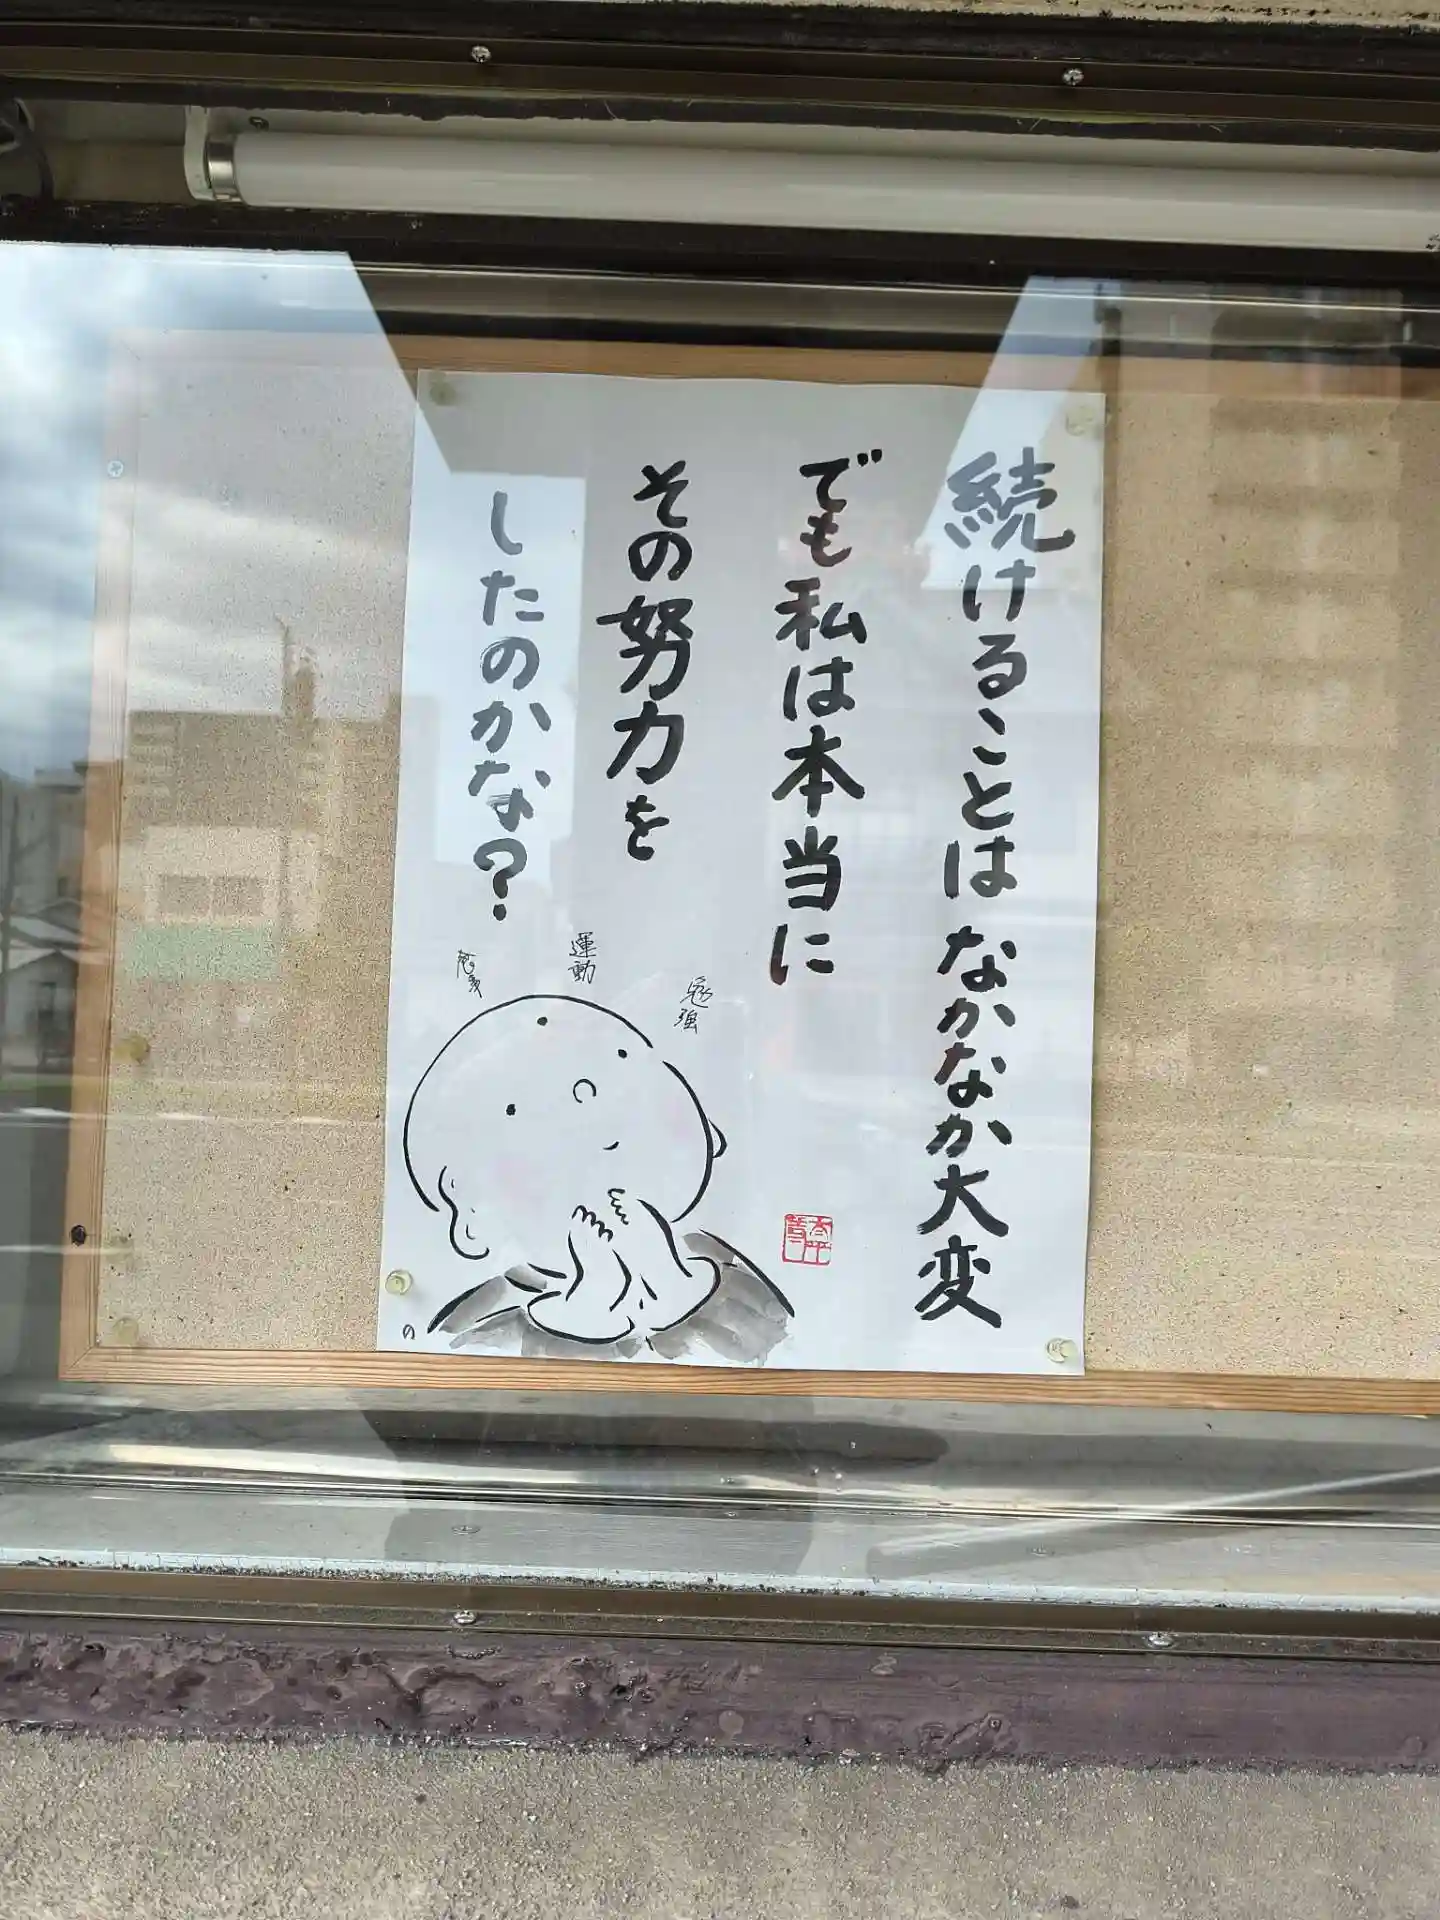 続けることは なかなか大変
でも私は本当に
その努力を
したのかな？
勉強
運動
の